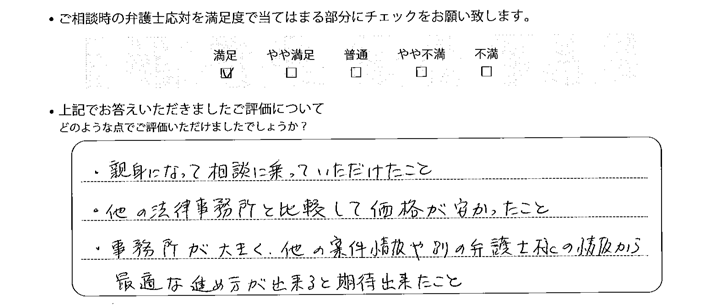 ・ご相談時の弁護士応対を満足度で当てはまる部分にチェックをお願い致します。
満足 やや満足 普通 やや不満 不満
☑ □ □ □ □
・上記でお答えいただきましたご評価について
どのような点でご評価いただけましたでしょうか？
・親身になって相談に乗っていただけたこと
・他の法律事務所と比較して価格が安かったこと
・事務所が大きく、他の案件情報や別の弁護士様の情報から
最適な進め方が出来ると期待出来たこと